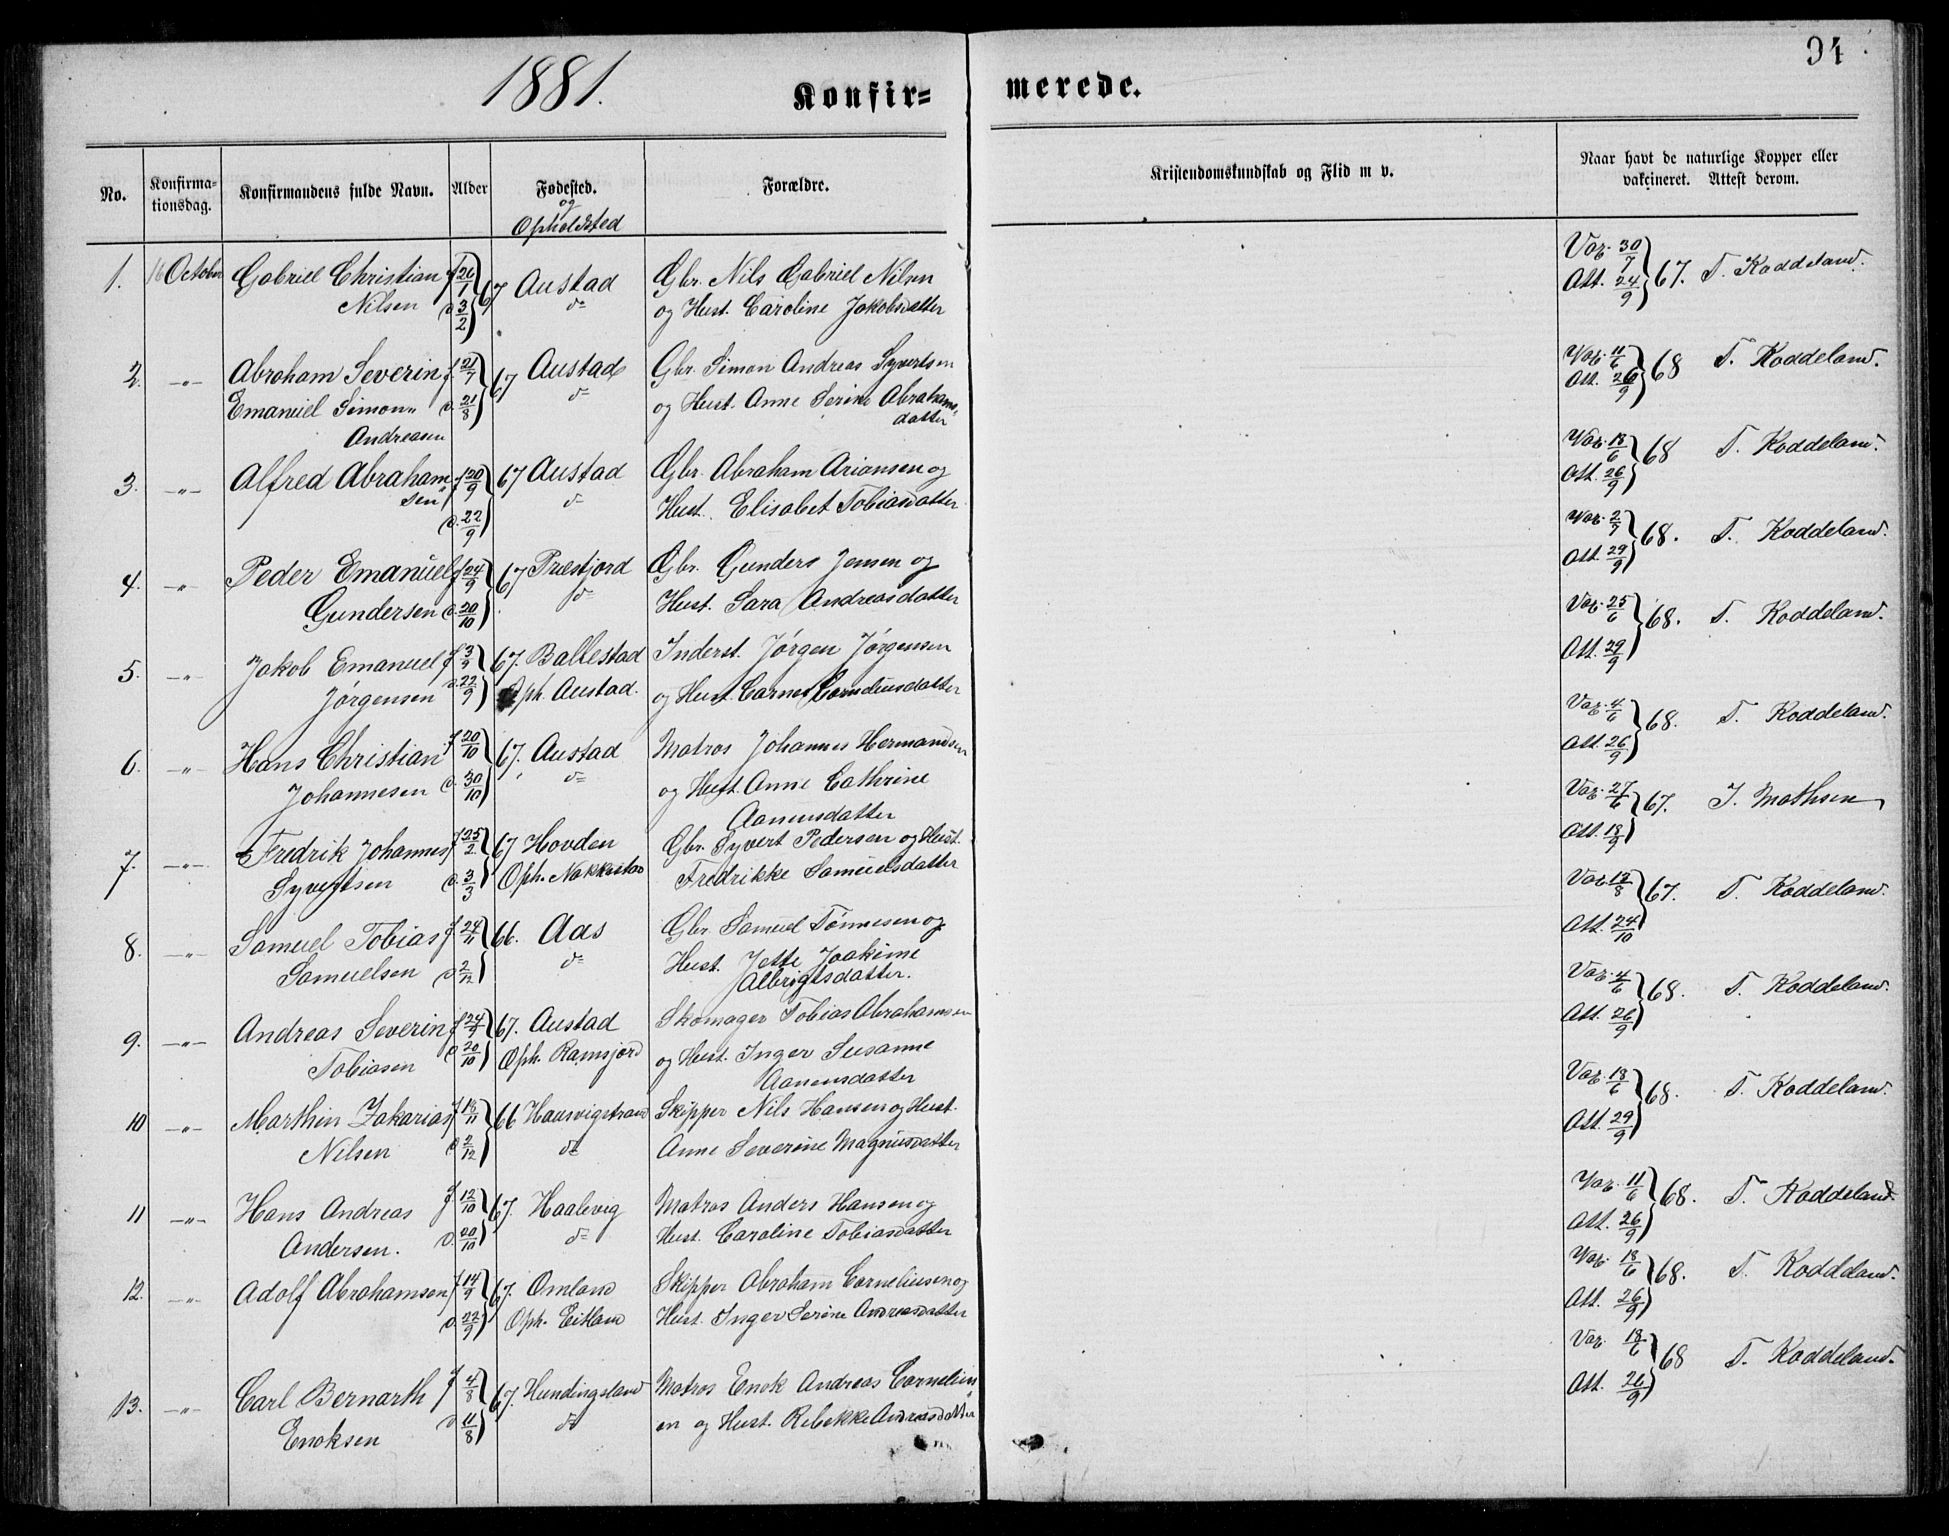 1881.
94
Konfir= merede.
No. Konfirma-tionsdag. Konfirmandens fulde Navn. Alder Fødested. og Opholdsted Forældre. Kristendomskundskab og Flid m v. Naar havt de naturlige Kopper eller vakcineret. Attest derom.
1. 16 October Gabriel Christian f. 26/1 67 Austad Gbr. Nils Gabriel Nilsen Vax. 30/7 67. T. Koddeland.
Nilsen d. 3/2 do og Hust. Caroline Jakobsdatter Att. 24/9
2. -"- Abraham Severin f. 21/7 67 Austad Gbr. Simon Andreas Syvertsen Vax. 11/6 68 T. Koddeland.
Emanuel Simon- d. 21/8 do og Hust. Anne Serine Abrahams- Att. 26/9
Andreasen datter
3. -"- Alfred Abraham f. 20/9 67 Austad Gbr. Abraham Ariansen og Vax. 18/6 68 T. Koddeland.
sen d. 22/9 do Hust. Elisabet Tobiasdatter Att. 26/9
4. -"- Peder Emanuel f. 24/9 67 Præstjord Gbr. Gunders Jensen og Vax. 2/7 68. T. Koddeland.
Gundersen d. 20/10 do Hust. Sara Andreasdatter Att. 29/9
5. -"- Jakob Emanuel f. 3/9 67. Ballestad Inderst. Jørgen Jørgensen Vax. 25/6 68. T. Koddeland.
Jørgensen d. 22/9 Oph. Austad. og Hust. Corneliusdatter Att. 29/9
6. -"- Hans Christian f. 20/10 67. Austad Matros Johannes Hermandsen Vax. 4/6 68. T. Koddeland.
Johannesen d. 30/10 do og Hust. Anne Cathrine Att. 26/9
Aanensdatter
7. -"- Fredrik Johannes f. 25/2 67 Hovden Gbr. Syvert Pedersen og Hust. Vax. 27/6 67. J. Mathsen
Syvertsen d. 3/3 Oph. Nakkestad Fredrikke Samuelsdatter Att. 18/9
8. -"- Samuel Tobias f. 24/11 66. Aas Gbr. Samuel Tønnesen og Vax. 13/8 67. T. Koddeland.
Samuelsen d. 2/12 do Hust. Jette Joakime Att. 24/10
Albrigtsdatter.
9. -"- Andreas Severin f. 24/9 67. Austad Skomager Tobias Abrahamsen Vax. 4/6 68. T. Koddeland.
Tobiasen d. 20/10 Oph. Ramsjord og Hust. Inger Susanne Att. 26/9
Aanensdatter
10 -"- Marthin Zakarias f. 18/11 66 Haavigstrand Skipper Nils Hansen og Hust. Vax. 18/6 68. T. Koddeland.
Nilsen d. 2/12 do Anne Severine Magnusdatter Att. 29/9
11 -"- Hans Andreas f. 12/10 67. Haalevig Matros Anders Hansen og Vax. 11/6 68. T. Koddeland.
Andersen. d. 20/10 do Hust. Caroline Tobiasdatter Att. 26/9
12. -"- Adolf Abrahamsen f. 14/9 67. Omland Skipper Abraham Corneliusen og Vax. 18/6 68. T. Koddeland.
d. 22/9 Oph. Eitland Hust. Inger Serine Andreasdatter Att. 26/9
13. -"- Carl Bernarth f. 4/8 67. Hundingsland Matros Enok Andreas Cornelius Vax. 18/6 68 T. Koddeland.
Enoksen d. 11/8 do en og Hust. Rebekke Andreasdatter Att. 26/9